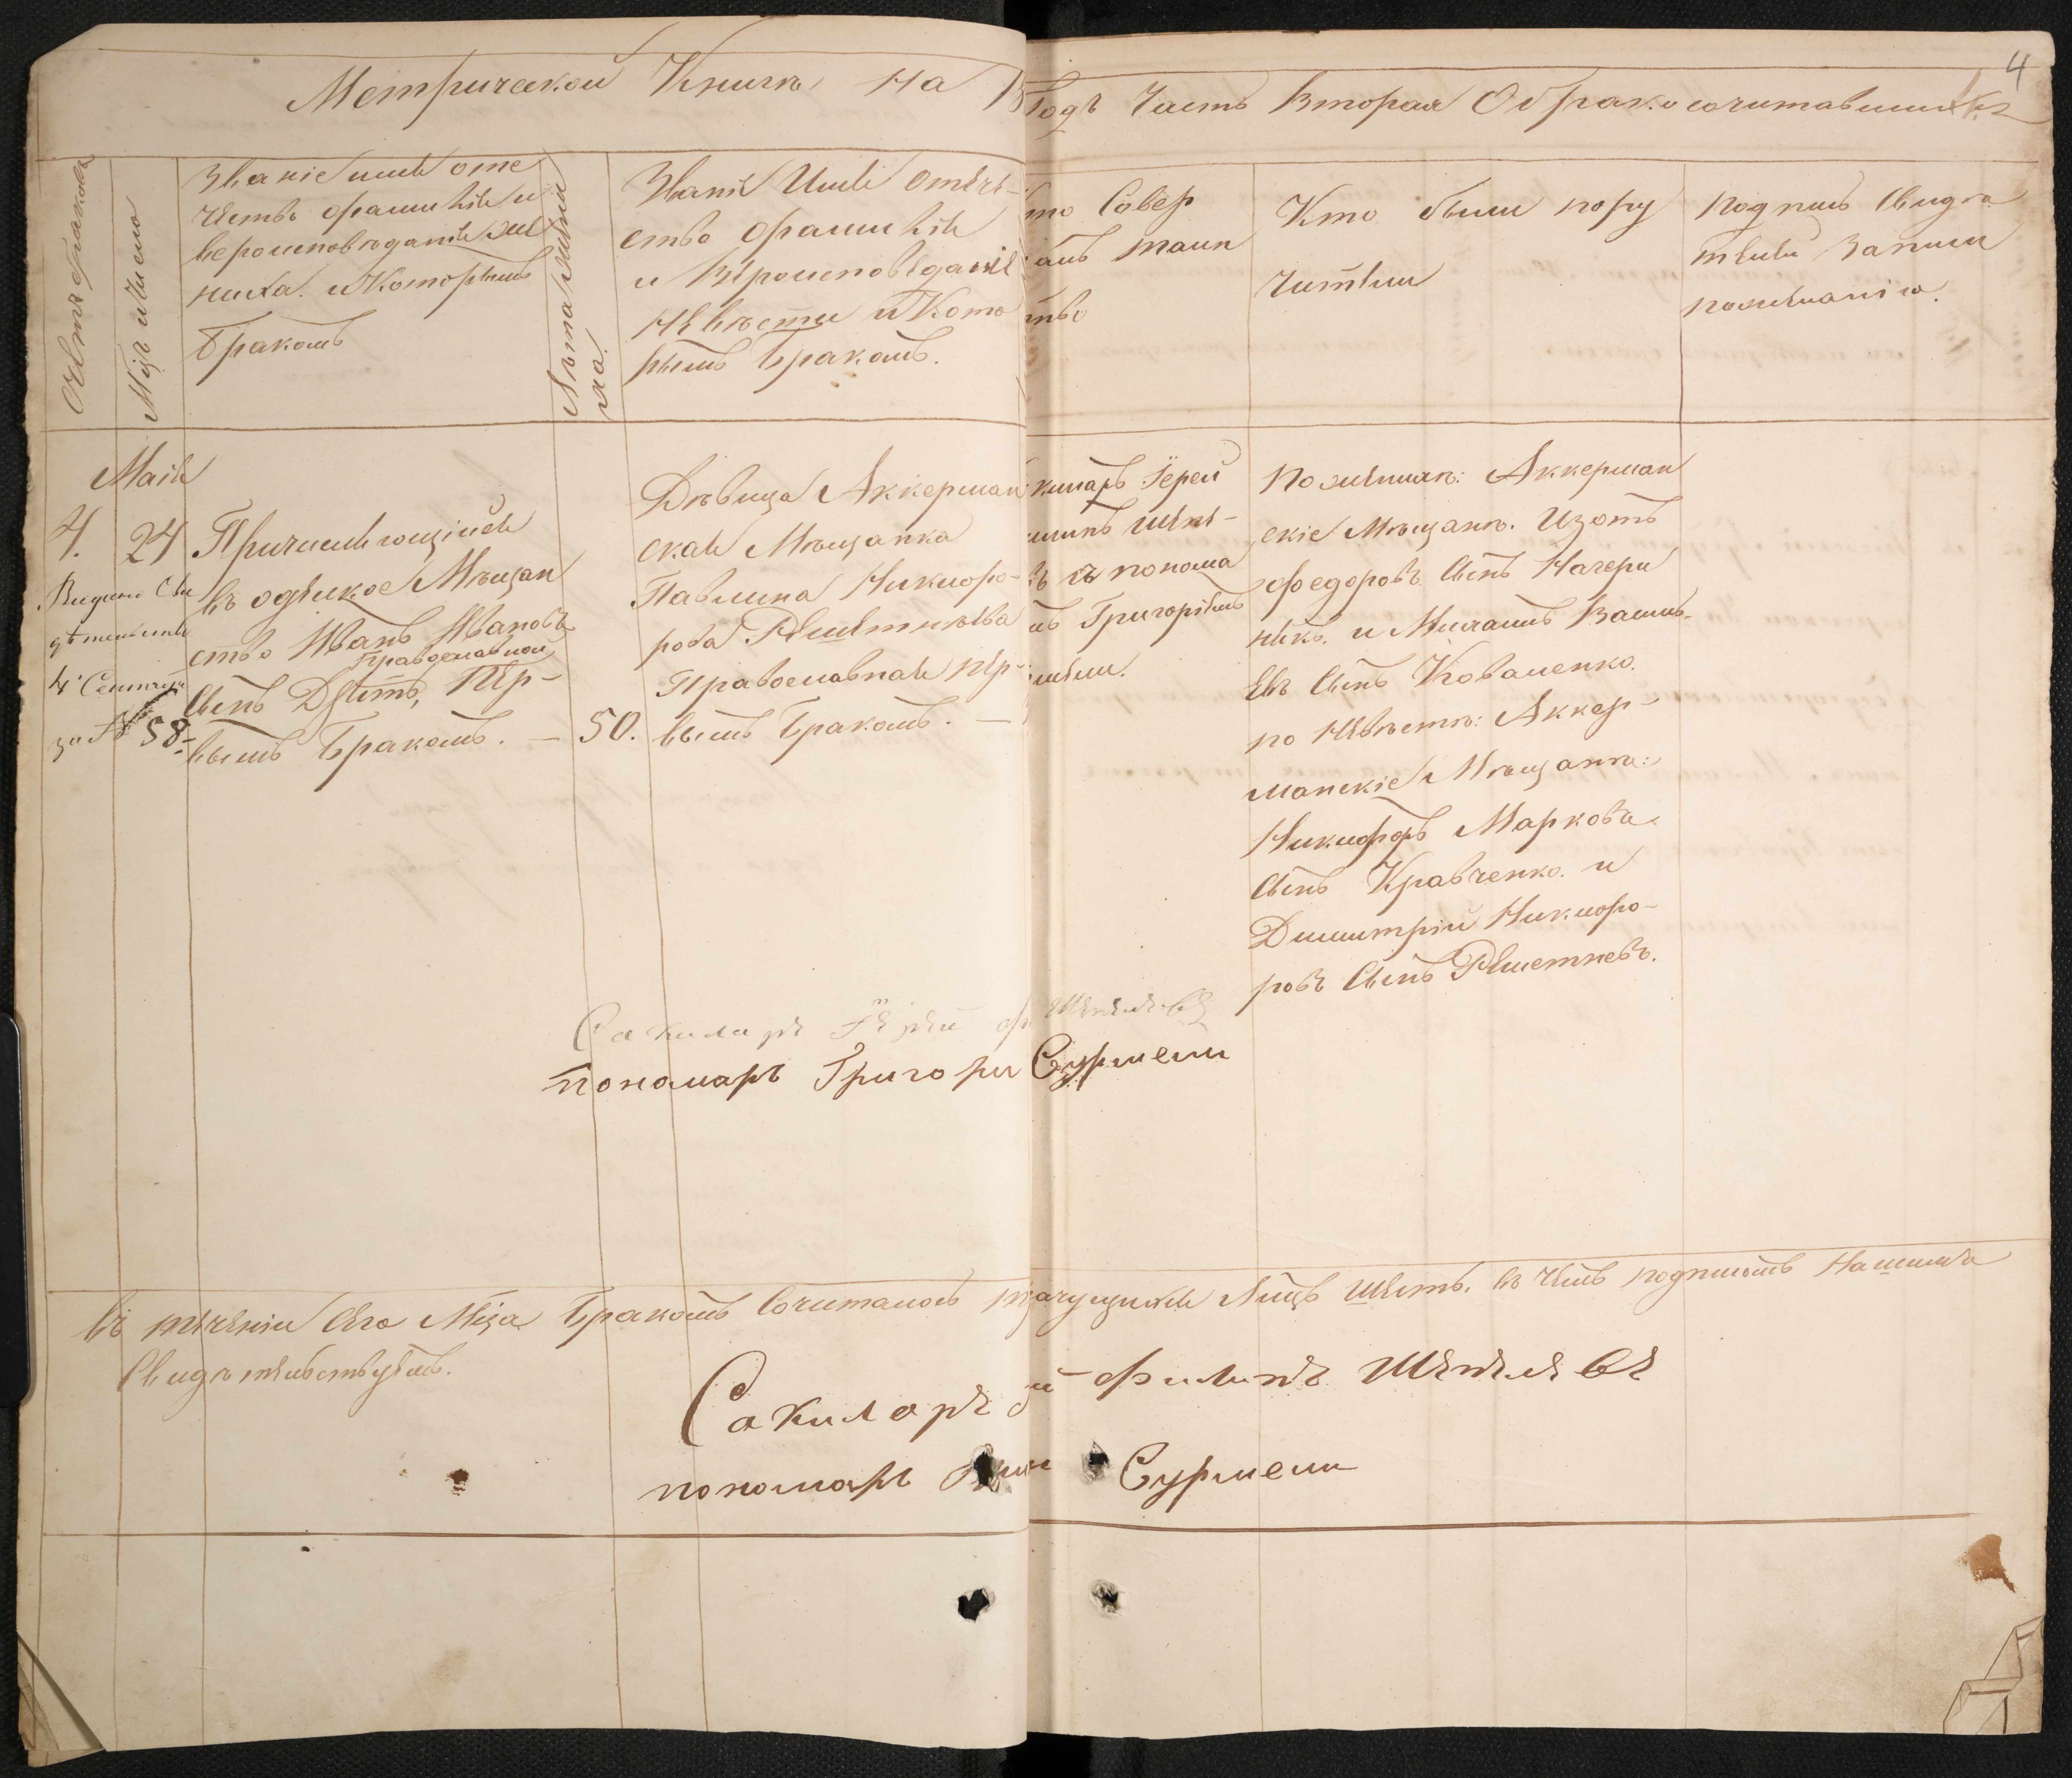 4
Метрической Книги на 18
Годъ Часть Вторая О бракосочитавшихся
Счетъ браковъ
Мѣсяцъ и Число
Званіе имя оте
чество фамилія и
вероисповѣданіе же
ниха. и Которымъ
бракомъ
Лѣта жени
ха.
Званіе Имя Отече-
ство фамилія
и вѣроисповѣданіе
невѣсты и Кото
рымъ бракомъ.
то Совер
алъ таин
тво
Кто были пору
чители
подпись свидѣ
телей Записи
пожеланію.
Маія
4. 24
Видено Сви
дѣтельство
4 Сентября
за № 58
Причисляющійся
въ одеское Мѣщан
ство Иванъ Ивановъ
Православной
Сынъ Дзетъ, пер-
вымъ бракомъ. —
50.
Дѣвица Аккерман
ская Мѣщанка
Павлина Никифо-
рова Решетнѣва
Православная пер-
вымъ бракомъ. —
киларъ Іерей
липъ Шепе-
въ съ понома
мъ Григоріемъ
мели.
По женихѣ: Аккерман
скіе Мѣщанѣ. Изотъ
Федоровъ Сынъ Начерн
никъ. и Михаилъ Васил-
евъ Сынъ Коваленко.
по Невѣстѣ: Аккер-
манскіе Мѣщанѣ:
Никифоръ Маркова
Сынъ Кравченко. и
Димитрій Никифо-
ровъ Сынъ Решетневъ.
Сакиларъ Іерей Ф Шепелевъ
пономаръ Григори Сурмели
въ теченіи Сего Мѣца бракомъ Сочиталось трачущихся лицъ шесть. въ чемъ подписомъ Нашимъ
Свидѣтельствуемъ.
Сакиларъ й Филипъ Шепелевъ
пономаръ Сурмели